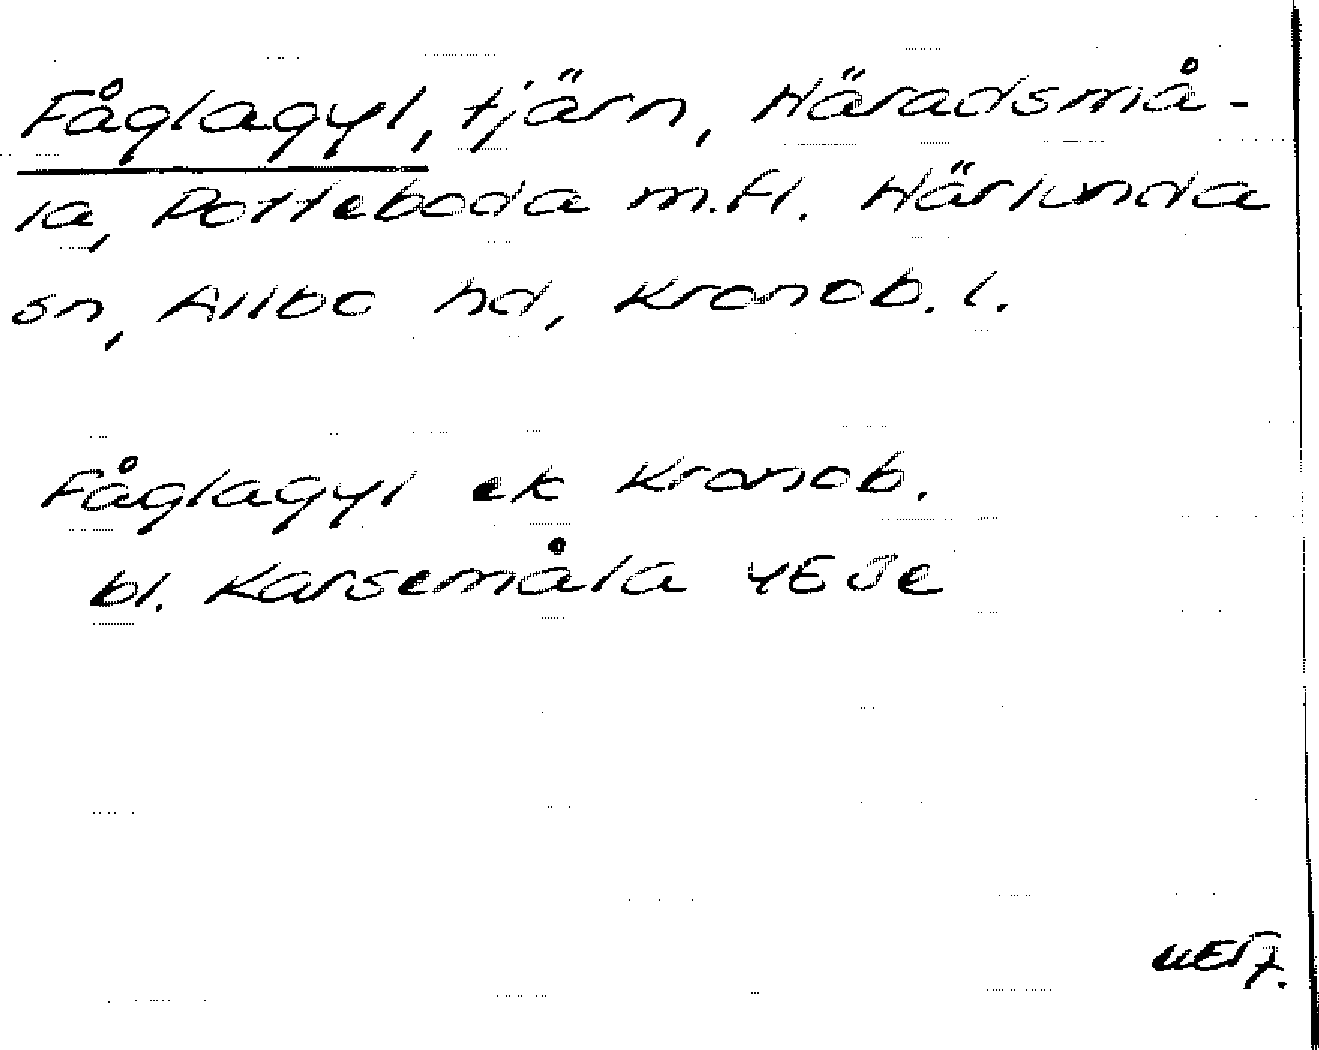 Fåglagyl, tjärn, Häradsmå-
la, Potteboda m.fl. Härlunda
sn, Allbo hd, Kronob. l.
Fåglagyl ek Kronob.
bl. Karsemåla 4E Je